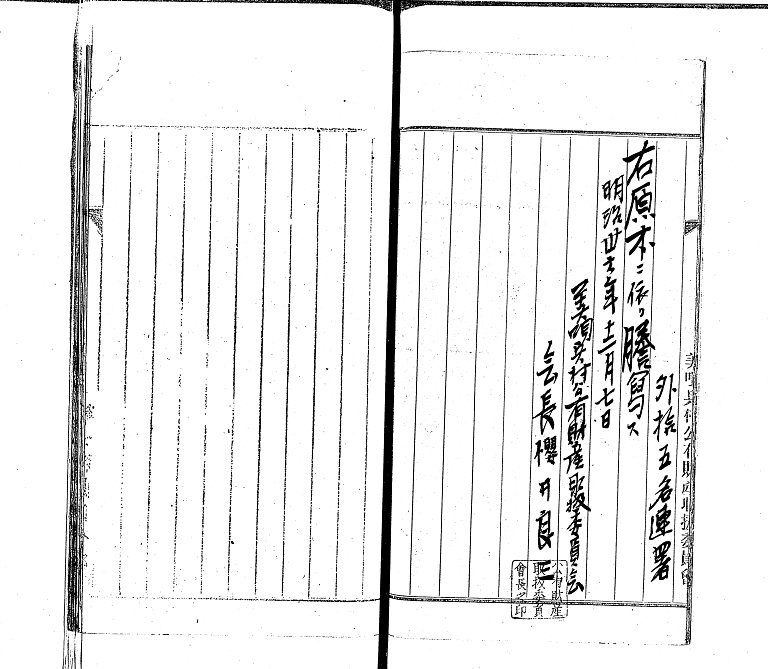 外拾五名連署
右原本ニ依リ謄写ス
明治卅七年十二月七日
美唄兵村公有財産取扱委員会
会長櫻井良三
公有財産
取扱委員
會長之印